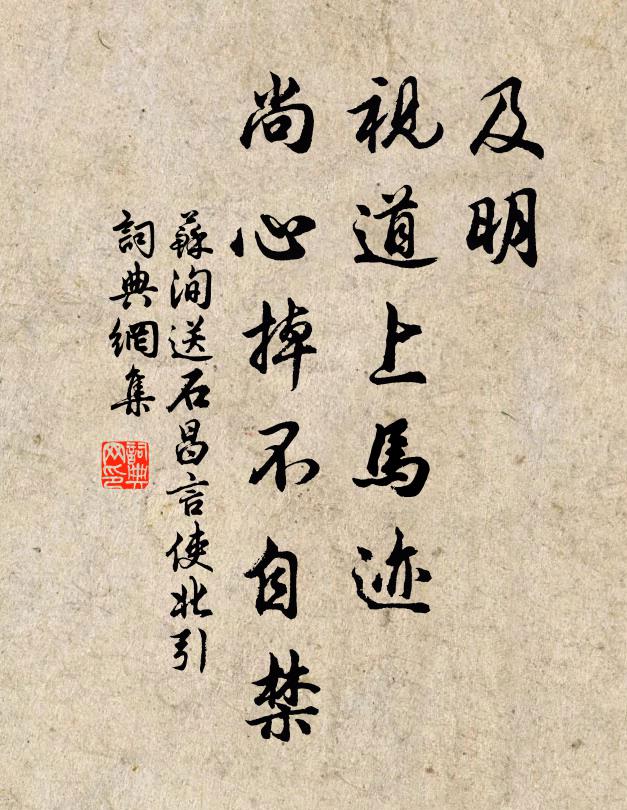 及明
視道上馬迹
尚心掉不自禁
蘇洵送石昌言使北引
詞典網集
詞典
网印